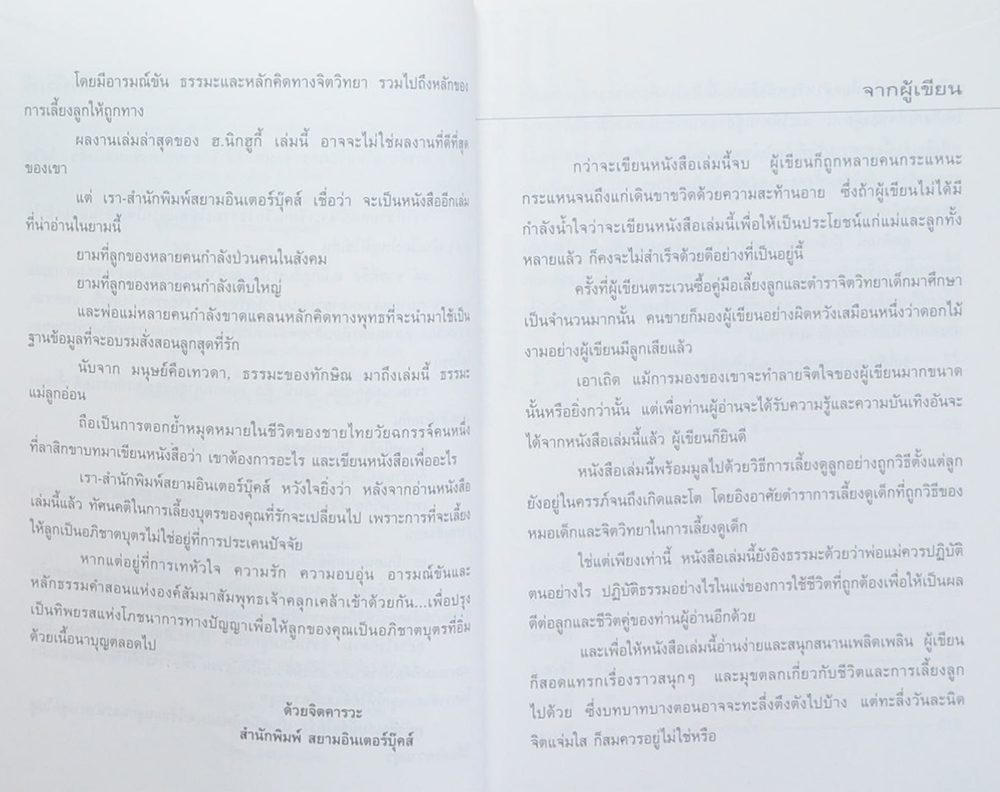 โดยมีอารมณ์ขัน ธรรมะและหลักคิดทางจิตวิทยา รวมไปถึงหลักของ
การเลี้ยงลูกให้ถูกทาง
ผลงานเล่มล่าสุดของ ฮ.นิกฮูกี้ เล่มนี้ อาจจะไม่ใช่ผลงานที่ดีที่สุด
ของเขา
แต่ เรา-สำนักพิมพ์สยามอินเตอร์บุ๊คส์ เชื่อว่า จะเป็นหนังสืออีกเล่ม
ที่น่าอ่านในยามนี้
ยามที่ลูกของหลายคนกำลังป่วนคนในสังคม
ยามที่ลูกของหลายคนกำลังเติบใหญ่
และพ่อแม่หลายคนกำลังขาดแคลนหลักคิดทางพุทธที่จะนำมาใช้เป็น
ฐานข้อมูลที่จะอบรมสั่งสอนลูกสุดที่รัก
นับจาก มนุษย์คือเทวดา, ธรรมะของทักษิณ มาถึงเล่มนี้ ธรรมะ
แม่ลูกอ่อน
ถือเป็นการตอกย้ำหมุดหมายในชีวิตของชายไทยวัยฉกรรจ์คนหนึ่ง
ที่ลาสิกขาบทมาเขียนหนังสือว่า เขาต้องการอะไร และเขียนหนังสือเพื่ออะไร
เรา-สำนักพิมพ์สยามอินเตอร์บุ๊คส์ หวังใจยิ่งว่า หลังจากอ่านหนังสือ
เล่มนี้แล้ว ทัศนคติในการเลี้ยงบุตรของคุณที่รักจะเปลี่ยนไป เพราะการที่จะเลี้ยง
ให้ลูกเป็นอภิชาตบุตรไม่ใช่อยู่ที่การประเคนปัจจัย
หากแต่อยู่ที่การเทหัวใจ ความรัก ความอบอุ่น อารมณ์ขันและ
หลักธรรมคำสอนแห่งองค์สัมมาสัมพุทธเจ้าคลุกเคล้าเข้าด้วยกัน...เพื่อปรุง
เป็นทิพยรสแห่งโภชนาการทางปัญญาเพื่อให้ลูกของคุณเป็นอภิชาตบุตรที่อิ่ม
ด้วยเนื้อนาบุญตลอดไป
ด้วยจิตคารวะ
สำนักพิมพ์ สยามอินเตอร์บุ๊คส์
จากผู้เขียน
กว่าจะเขียนหนังสือเล่มนี้จบ ผู้เขียนก็ถูกหลายคนกระแหนะ
กระแหนจนถึงแก่เดินขาขวิดด้วยความสะท้านอาย ซึ่งถ้าผู้เขียนไม่ได้มี
กำลังน้ำใจว่าจะเขียนหนังสือเล่มนี้เพื่อให้เป็นประโยชน์แก่แม่และลูกทั้ง
หลายแล้ว ก็คงจะไม่สำเร็จด้วยดีอย่างที่เป็นอยู่นี้
ครั้งที่ผู้เขียนตระเวนซื้อคู่มือเลี้ยงลูกและตำราจิตวิทยาเด็กมาศึกษา
เป็นจำนวนมากนั้น คนขายก็มองผู้เขียนอย่างผิดหวังเสมือนหนึ่งว่าดอกไม้
งามอย่างผู้เขียนมีลูกเสียแล้ว
เอาเถิด แม้การมองของเขาจะทำลายจิตใจของผู้เขียนมากขนาด
นั้นหรือยิ่งกว่านั้น แต่เพื่อท่านผู้อ่านจะได้รับความรู้และความบันเทิงอันจะ
ได้จากหนังสือเล่มนี้แล้ว ผู้เขียนก็ยินดี
หนังสือเล่มนี้พร้อมมูลไปด้วยวิธีการเลี้ยงดูลูกอย่างถูกวิธีตั้งแต่ลูก
ยังอยู่ในครรภ์จนถึงเกิดและโต โดยอิงอาศัยตำราการเลี้ยงดูเด็กที่ถูกวิธีของ
หมอเด็กและจิตวิทยาในการเลี้ยงดูเด็ก
ใช่แต่เพียงเท่านี้ หนังสือเล่มนี้ยังอิงธรรมะด้วยว่าพ่อแม่ควรปฏิบัติ
ตนอย่างไร ปฏิบัติธรรมอย่างไรในแง่ของการใช้ชีวิตที่ถูกต้องเพื่อให้เป็นผล
ดีต่อลูกและชีวิตคู่ของท่านผู้อ่านอีกด้วย
และเพื่อให้หนังสือเล่มนี้อ่านง่ายและสนุกสนานเพลิดเพลิน ผู้เขียน
ก็สอดแทรกเรื่องราวสนุกๆ และมุขตลกเกี่ยวกับชีวิตและการเลี้ยงลูก
ไปด้วย ซึ่งบทบาทบางตอนอาจจะทะลึ่งตึงตังไปบ้าง แต่ทะลึ่งวันละนิด
จิตแจ่มใส ก็สมควรอยู่ไม่ใช่หรือ